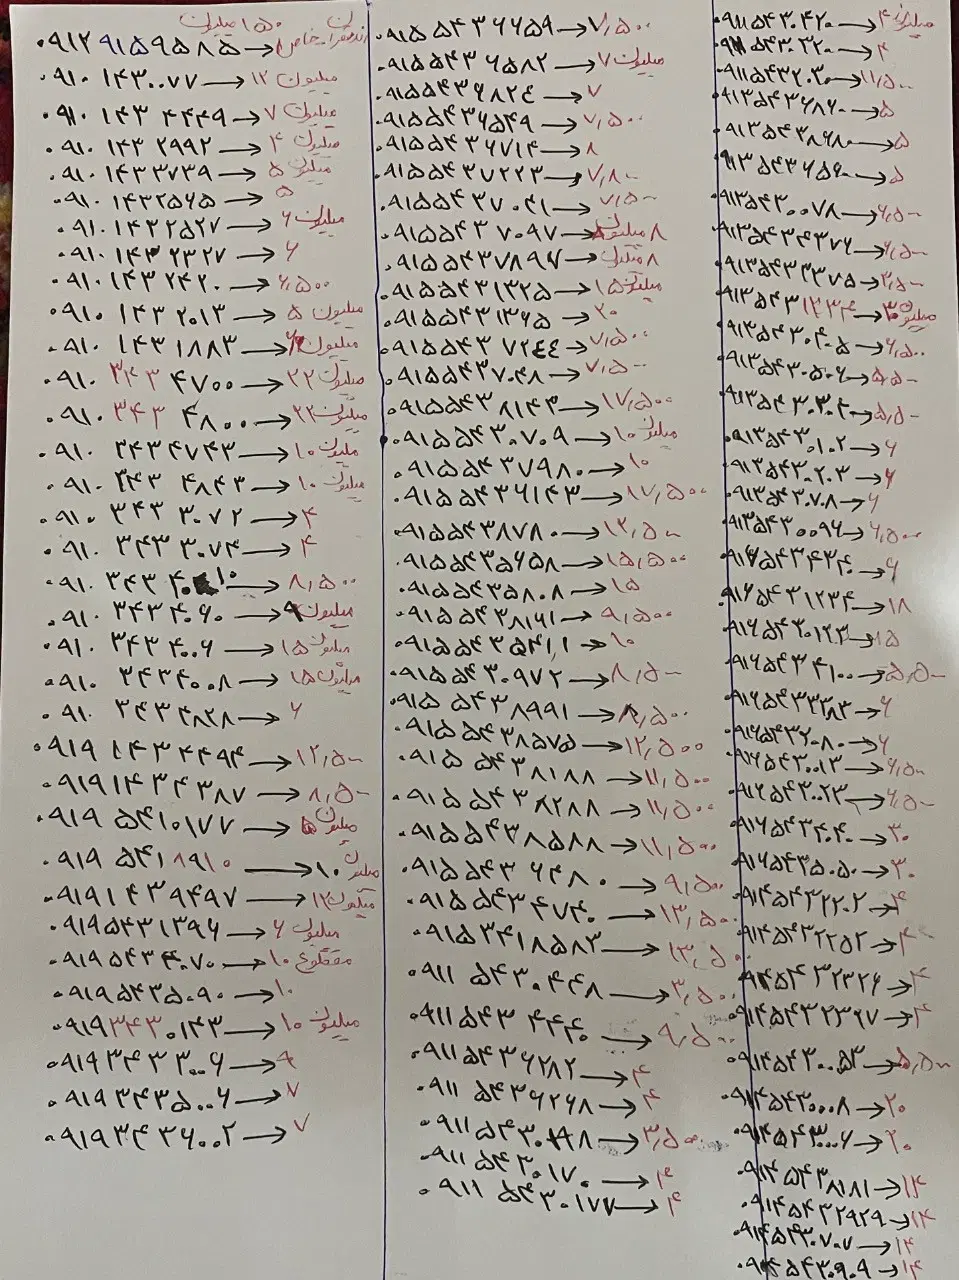 ۱۵۰ میلیون
۰۹۱۲ ۹۱۵ ۹۵۸۵ →
۰۹۱۰ ۱۴۳۰۰۷۷ → ۱۲ میلیون
۰۹۱۰ ۱۴۳ ۴۴۴۹ → ۷ میلیون
۰۹۱۰ ۱۴۳ ۲۹۹۲ → ۴ میلیون
۰۹۱۰ ۱۴۳۳۷۳۹ → ۵ میلیون
۰۹۱۰ ۱۴۳۲۵۶۵ → ۵
۰۹۱۰ ۱۴۳۲۵۲۷ → ۶ میلیون
۰۹۱۰ ۱۴۳ ۲۳۲۷ → ۶
۰۹۱۰ ۱۴۳ ۲۴۲۰ → ۶,۵۰۰
۰۹۱۰ ۱۴۳ ۲۰۱۳ → ۵ میلیون
۰۹۱۰ ۱۴۳ ۱۸۸۳ → میلیون
۰۹۱۰ ۳۴۳ ۴۷۰۰ → ۲۲ میلیون
۰۹۱۰ ۳۴۳ ۴۸۰۰ → ۲۲ میلیون
۰۹۱۰ ۳۴۳ ۴۷۴۳ → ۱۰ میلیون
۰۹۱۰ ۳۴۳ ۴۸۴۳ → ۱۰ میلیون
۰۹۱۰ ۳۴۳ ۳۰۷۲ → ۴
۰۹۱۰ ۳۴۳ ۳۰۷۴ → ۴
۰۹۱۰ ۳۴۳ → ۸,۵۰۰
۰۹۱۰ ۳۴۳۴۰۶۰ → ۹ میلیون
۰۹۱۰ ۳۴۳۴۰۰۶ → ۱۵ میلیون
۰۹۱۰ ۳۴۳۴۰۰۸ → ۱۵ میلیون
۰۹۱۰ ۳۴۳ ۴۸۲۸ → ۶
۰۹۱۹ ۱۴۳ ۴۴۹۴ → ۱۲,۵۰۰
۰۹۱۹ ۱۴۳ ۴۳۸۷ → ۸,۵۰۰
۰۹۱۹ ۵۴۱۰۱۷۷ → ۱۵ میلیون
۰۹۱۹ ۵۴۱ ۸۹۱۰ → ۱۰ میلیون
۰۹۱۹ ۱۴۳۹۴۹۷ → ۱۲ میلیون
۰۹۱۹۵۴۳۱۳۹۶ → ۶ میلیون
۰۹۱۹ ۵۴۳ ۴۰۷۰ → ۱۰
۰۹۱۹ ۵۴۳۵۰۹۰ → ۱۰
۰۹۱۹ ۳۴۳۰۱۴۳ → ۱۰ میلیون
۰۹۱۹ ۳۴۳ ۳۰۰۶ → ۹
۰۹۱۹ ۳۴۳۵۰۰۶ → ۷
۰۹۱۹ ۳۴۳ ۶۰۰۲ → ۷
۰۹۱۵ ۵۴۳ ۶۶۵۹ → ۷,۵۰۰
۰۹۱۵۵۴۳ ۶۵۸۲ → ۷ میلیون
۰۹۱۵۵۴۳۶۸۲۴ → ۷
۰۹۱۵۵۴۳۶۵۴۹ → ۷,۵۰۰
۰۹۱۵۵۴۳۶۷۱۴ → ۸
۰۹۱۵۵۴۳۷۲۲۳ → ۷,۸۰۰
۰۹۱۵۵۴۳۷۰۴۱ → ۷,۵۰۰
۰۹۱۵۵۴۳ ۷۰۹۷ → ۸ میلیون
۰۹۱۵ ۵۴۳۷۸۹۷ → ۸ میلیون
۰۹۱۵ ۵۴۳۱۳۲۵ → ۱۵ میلیون
۰۹۱۵۵۴۳۱۳۶۵ → ۲۰
۰۹۱۵۵۴۳ ۷۲۴۴ → ۷,۵۰۰
۰۹۱۵۵۴۳۷۰۴۸ → ۷,۵۰۰
۰۹۱۵۵۴۳ ۸۱۴۳ → ۱۷,۵۰۰
۰۹۱۵۵۴۳۰۷۰۹ → ۱۰ میلیون
۰۹۱۵۵۴۳۷۹۸۰ → ۱۰
۰۹۱۵ ۵۴۳۶۱۴۳ → ۱۷,۵۰۰
۰۹۱۵۵۴۳۸۷۸۰ → ۱۲,۵۰۰
۰۹۱۵۵۴۳۵۶۵۸ → ۱۵,۵۰۰
۰۹۱۵۵۴۳۵۸۰۸ → ۱۵
۰۹۱۵۵۴۳۸۱۶۱ → ۹,۵۰۰
۰۹۱۵۵۴۳۵۴۱۰۱ → ۱۰
۰۹۱۵۵۴۳۰۹۷۲ → ۸,۵۰۰
۰۹۱۵ ۵۴۳۸۹۹۱ → ۸,۵۰۰
۰۹۱۵ ۵۴۳۸۵۷۵ → ۱۲,۵۰۰
۰۹۱۵ ۵۴۳۸۱۸۸ → ۱۱,۵۰۰
۰۹۱۵ ۵۴۳۸۲۸۸ → ۱۱,۵۰۰
۰۹۱۵۵۴۳۸۵۸۸ → ۱۱,۵۰۰
۰۹۱۵۵۴۳ ۶۴۸۰ → ۹,۵۰۰
۰۹۱۵ ۵۴۳ ۴۷۴۰ → ۱۳,۵۰۰
۰۹۱۵۳۴۱۸۵۸۳ → ۱۳,۵۰۰
۰۹۱۱ ۵۴۳۰۴۴۸ → ۳,۵۰۰
۰۹۱۱ ۵۴۳ ۴۴۴۰ → ۹,۵۰۰
۰۹۱۱ ۵۴۳۶۲۸۲ → ۴
۰۹۱۱ ۵۴۳۶۲۶۸ → ۴
→ ۳,۵۰۰
۰۹۱۱ ۵۴۳۰۱۷۰ → ۴
۰۹۱۱ ۵۴۳۰۱۷۷ → ۴
۰۹۱۱ ۵۴۳۰۴۲۰ → ۴ میلیون
۰۹۱۱ ۵۴۳۰۳۲۰ → ۴
۰۹۱۱۵۴۳۲۰۲۰ → ۱۱,۵۰۰
۰۹۱۳۵۴۳۶۸۶۰ → ۵
۰۹۱۳۵۴۳۸۶۸۰ → ۵
۰۹۱۳۵۴۳۶۵۶۰ → ۵
۰۹۱۳۵۴۳۰۰۷۸ → ۶,۵۰۰
۰۹۱۳۵۴۳۴۳۷۶ → ۶,۵۰۰
۰۹۱۳۵۴۳۳۳۷۵ → ۳,۵۰۰
۰۹۱۳۵۴۳۱۲۳۴ → ۳۰ میلیون
۰۹۱۳۵۴۳۰۴۰۵ → ۶,۵۰۰
۰۹۱۳۵۴۳۰۵۰۶ → ۵,۵۰۰
۰۹۱۳۵۴۳۰۳۰۴ → ۵,۵۰۰
۰۹۱۳۵۴۳۰۱۰۲ → ۶
۰۹۱۳۵۴۳۰۲۰۳ → ۶
۰۹۱۳۵۴۳۰۷۰۸ → ۶
۰۹۱۳۵۴۳۰۰۹۶ → ۶,۵۰۰
۰۹۱۶۵۴۳۴۳۴۰ → ۶
۰۹۱۶۵۴۳۱۲۳۴ → ۱۸
۰۹۱۶۵۴۳۰۱۲۳ → ۱۵
۰۹۱۶۵۴۳۴۱۰۰ → ۵,۵۰۰
۰۹۱۶۵۴۳۳۳۸۳ → ۶
۰۹۱۶۵۴۳۲۰۸۰ → ۶
۰۹۱۶۵۴۳۰۰۱۳ → ۶,۵۰۰
۰۹۱۶۵۴۳۰۰۲۳ → ۶,۵۰۰
۰۹۱۶۵۴۳۴۰۴۰ → ۳۰
۰۹۱۶۵۴۳۵۰۵۰ → ۳۰
۰۹۱۴۵۴۳۲۲۰۲ → ۴
۰۹۱۴۵۴۳۲۲۵۲ → ۴
۰۹۱۴۵۴۳۲۳۲۶ → ۴
۰۹۱۴۵۴۳۲۳۹۷ → ۴
۰۹۱۴۵۴۳۰۰۵۳ → ۵,۵۰۰
۰۹۱۴۵۴۳۰۰۰۸ → ۲۰
۰۹۱۴۵۴۳۰۰۰۶ → ۲۰
۰۹۱۴۵۴۳۸۱۸۱ → ۱۴
۰۹۱۴۵۴۳۲۹۲۹ → ۱۴
۰۹۱۴۵۴۳۰۷۰۷ → ۱۴
۰۹۱۴۵۴۳۰۹۰۹ → ۱۴